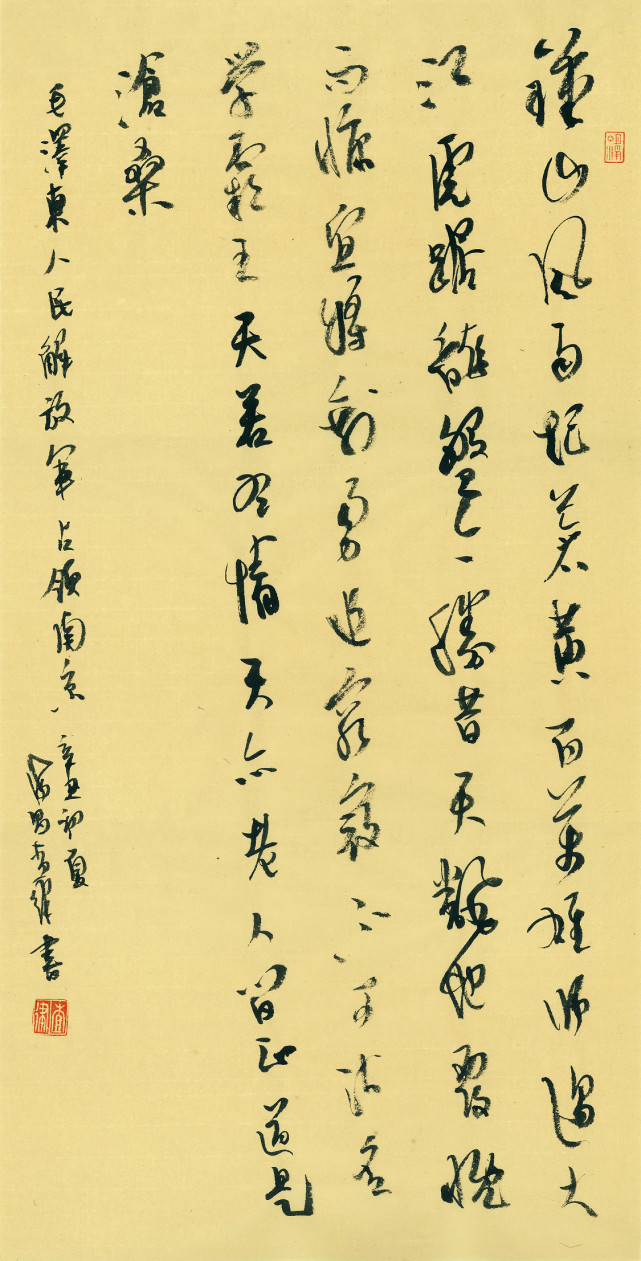 鐘山风雨起蒼黄百萬雄师過大
江虎踞龍盤今勝昔天翻地覆慨
而慷宜將剩勇追窮寇不可沽名
学霸王天若有情天亦老人间正道是
滄桑
毛澤東人民解放军占领南京
辛丑初夏
書